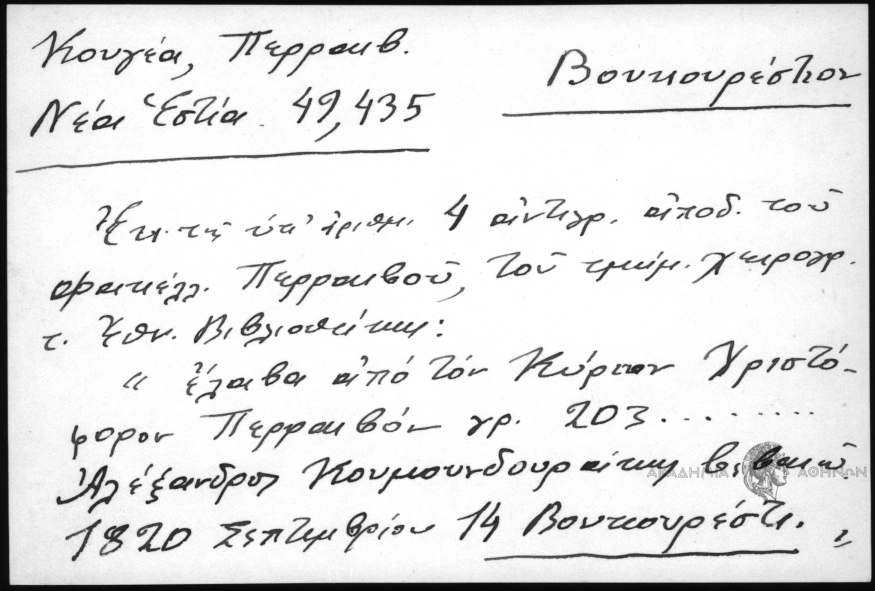 Κουγέα, Περραιβ.
Βουκουρέστιον
Νέα Ἑστία 49,435
Ἐκ τῆς ὑπ' ἀριθμ. 4 ἀντιγρ. ἀποδ. τοῦ
φακέλλ. Περραιβοῦ, τοῦ τμήμ. χειρογρ.
τ. Ἐθν. Βιβλιοθήκης:
" ἔλαβα ἀπό τόν Κύριον Χριστό-
φορον Περραιβόν γρ. 203........
Ἀλέξανδρος Κουμουνδουράκης βεβαιῶ
1820 Σεπτεμβρίου 14 Βουκουρέστι. "
ΑΚΑΔΗΜΙΑ ΑΘΗΝΩΝ